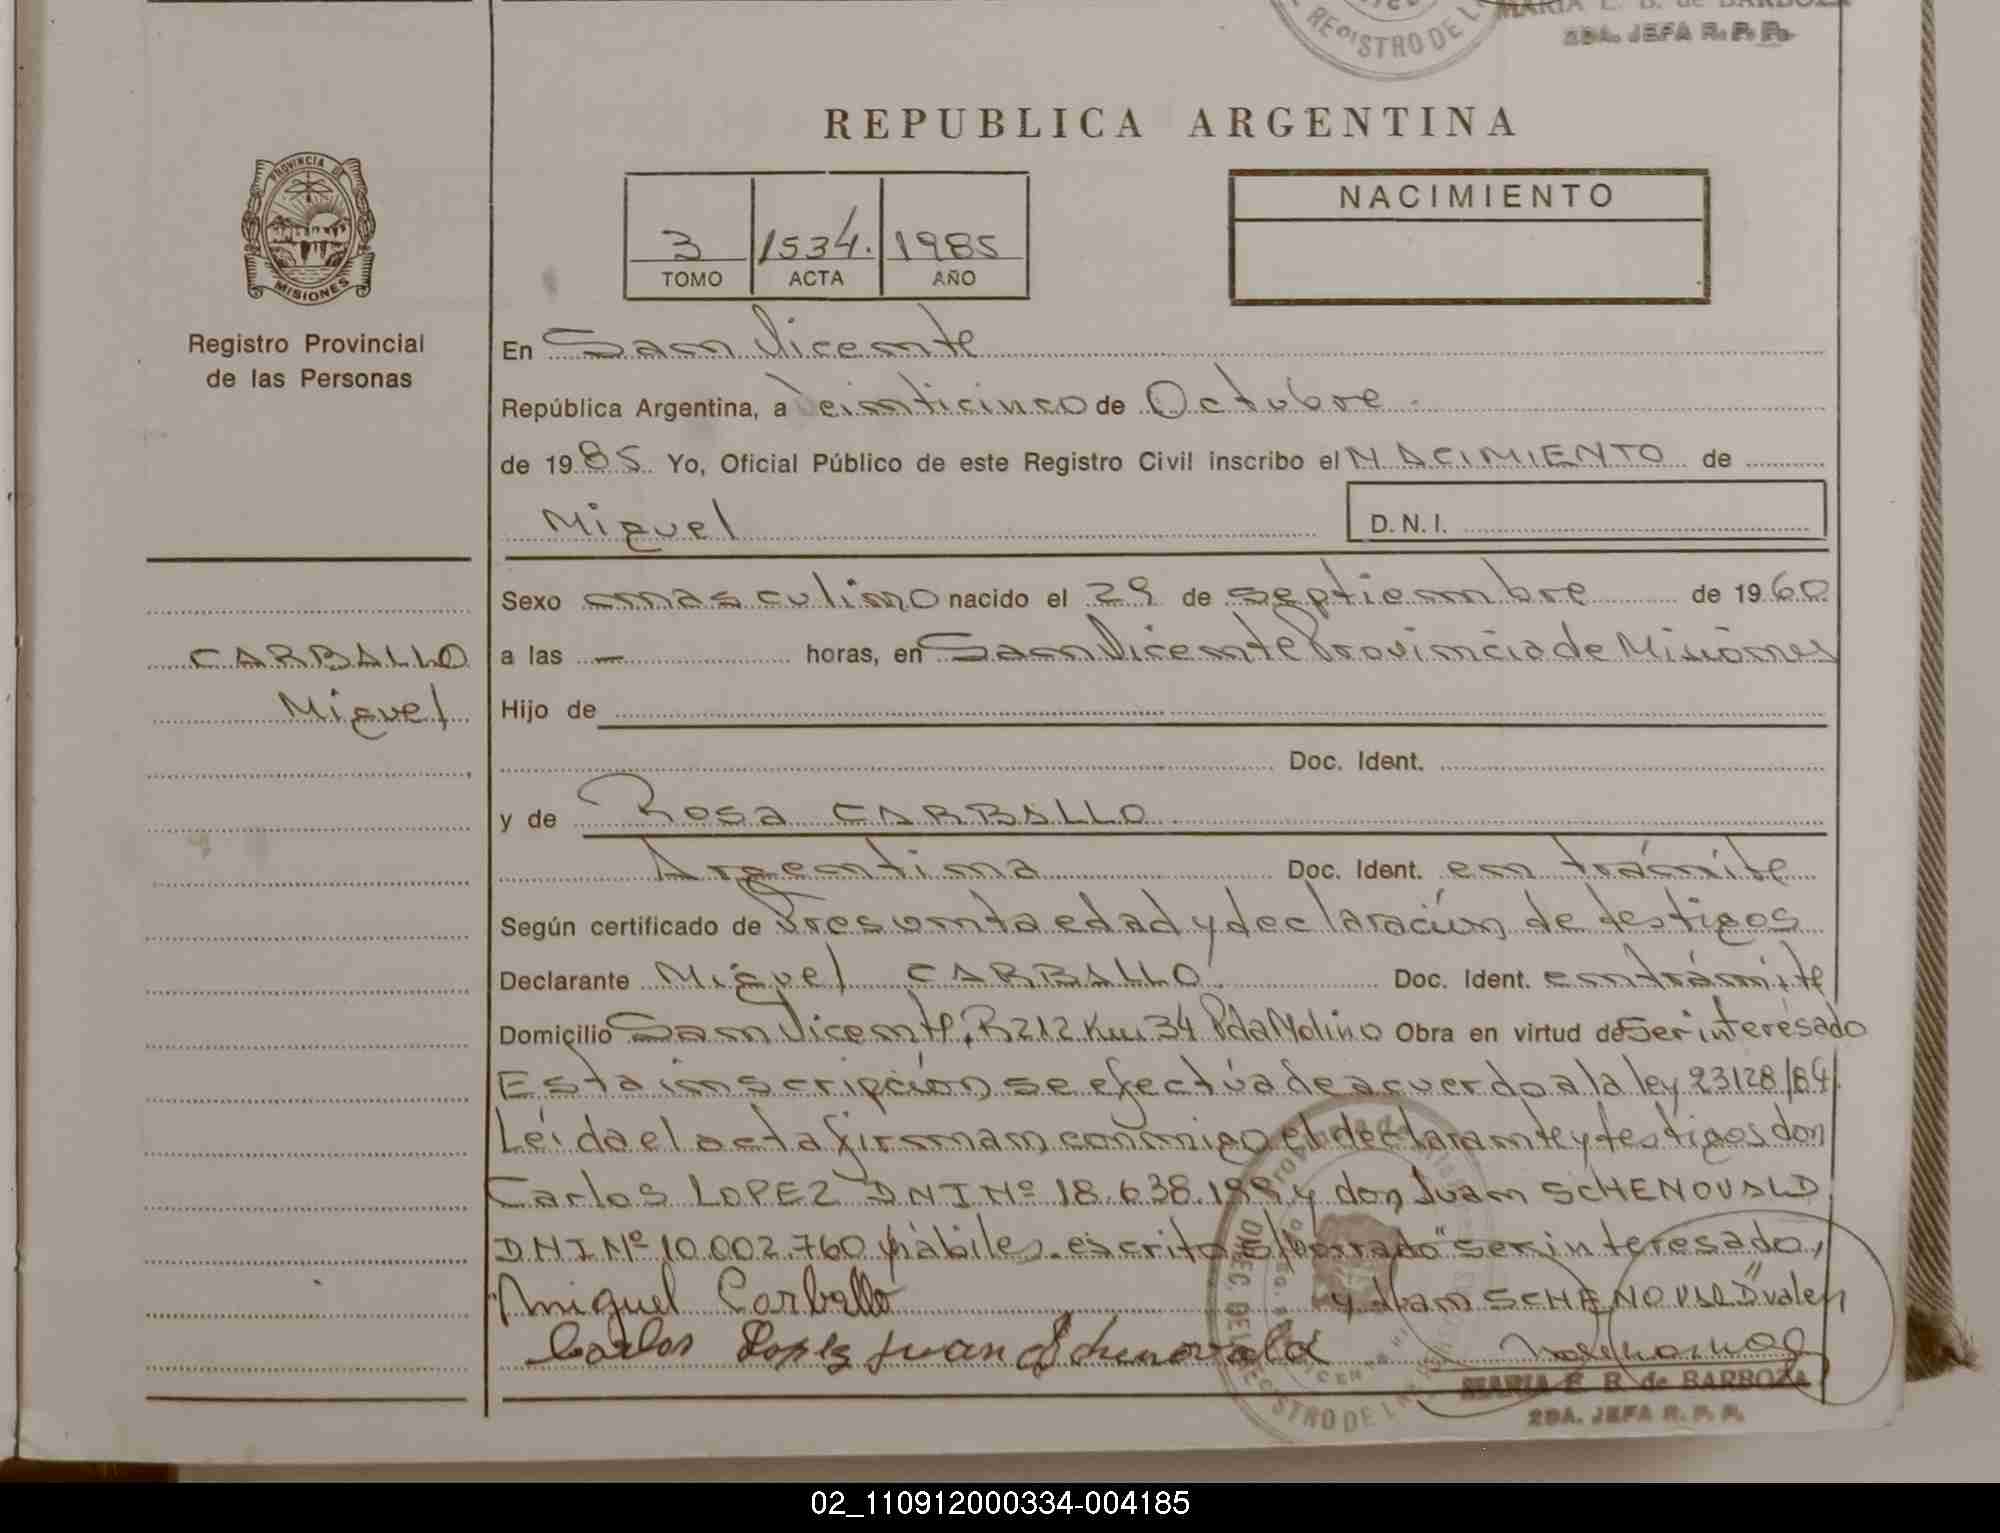 REGISTRO DE L
MARIA E. B. de BARBOZA
2DA. JEFA R. P. P.
REPUBLICA ARGENTINA
PROVINCIA DE
MISIONES
Registro Provincial
de las Personas
3 1534. 1985
TOMO ACTA AÑO
NACIMIENTO
En San Vicente
República Argentina, a Veinticinco de Octubre
de 1985 Yo, Oficial Público de este Registro Civil inscribo el NACIMIENTO de
Miguel D.N.I.
Sexo masculino nacido el 29 de septiembre de 1960
CARBALLO
Miguel
a las — horas, en San Vicente Provincia de Misiones
Hijo de
Doc. Ident.
y de Rosa CARBALLO
Argentina Doc. Ident. en trámite
Según certificado de Presunta edad y declaración de testigos
Declarante Miguel CARBALLO Doc. Ident. en trámite
Domicilio San Vicente, R212 Km 34 Pda Molino Obra en virtud de Ser interesado
Esta inscripción se efectúa de acuerdo a la ley 23128/84.
Leída el acta firman conmigo el declarante y testigos don
Carlos LOPEZ DNI Nº 18.638.199 y don Juan SCHENOVALD
DNI Nº 10.002.760 hábiles. escrito s/borrado "ser interesado,
Miguel Carballo y Juan SCHENOVALD" valen
Carlos Lopez Juan Schenovald
MARIA E. B. de BARBOZA
2DA. JEFA R. P. P.
02_110912000334-004185